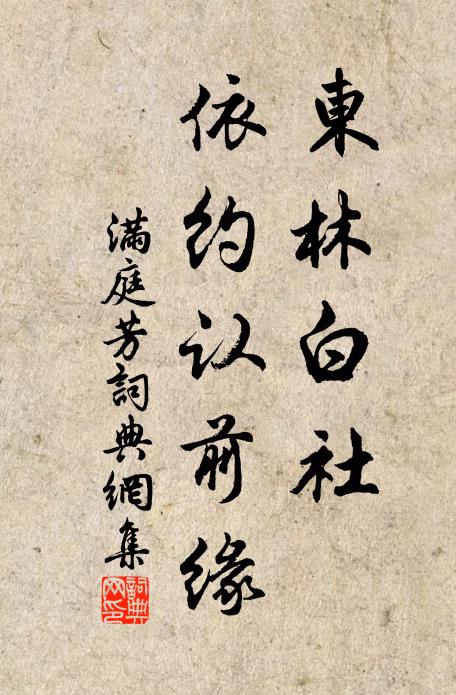 東林白社
依約认前緣
滿庭芳詞典網集
詞典
网印